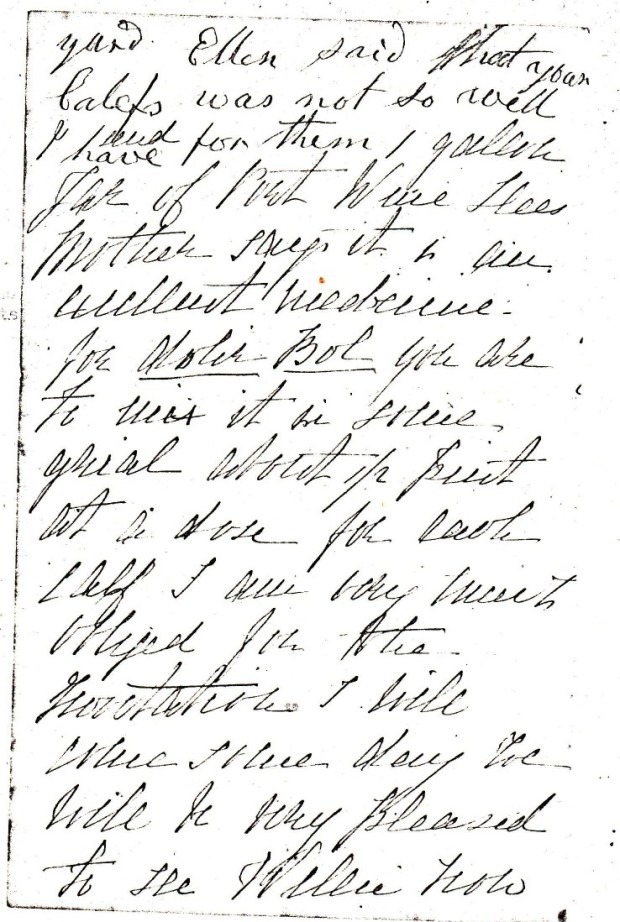 yard. Ellen said that your
Calefs was not so well
I have send for them 1 gallon
Jar of Port Wine Lees
Mother says it is an
excellent medecine
for you are
to mix it in some
grual about 1/2 Pint
at a dose for each
calf I am very much
obliged for the
Invitation I will
come some day we
will be very pleased
to see Willie now